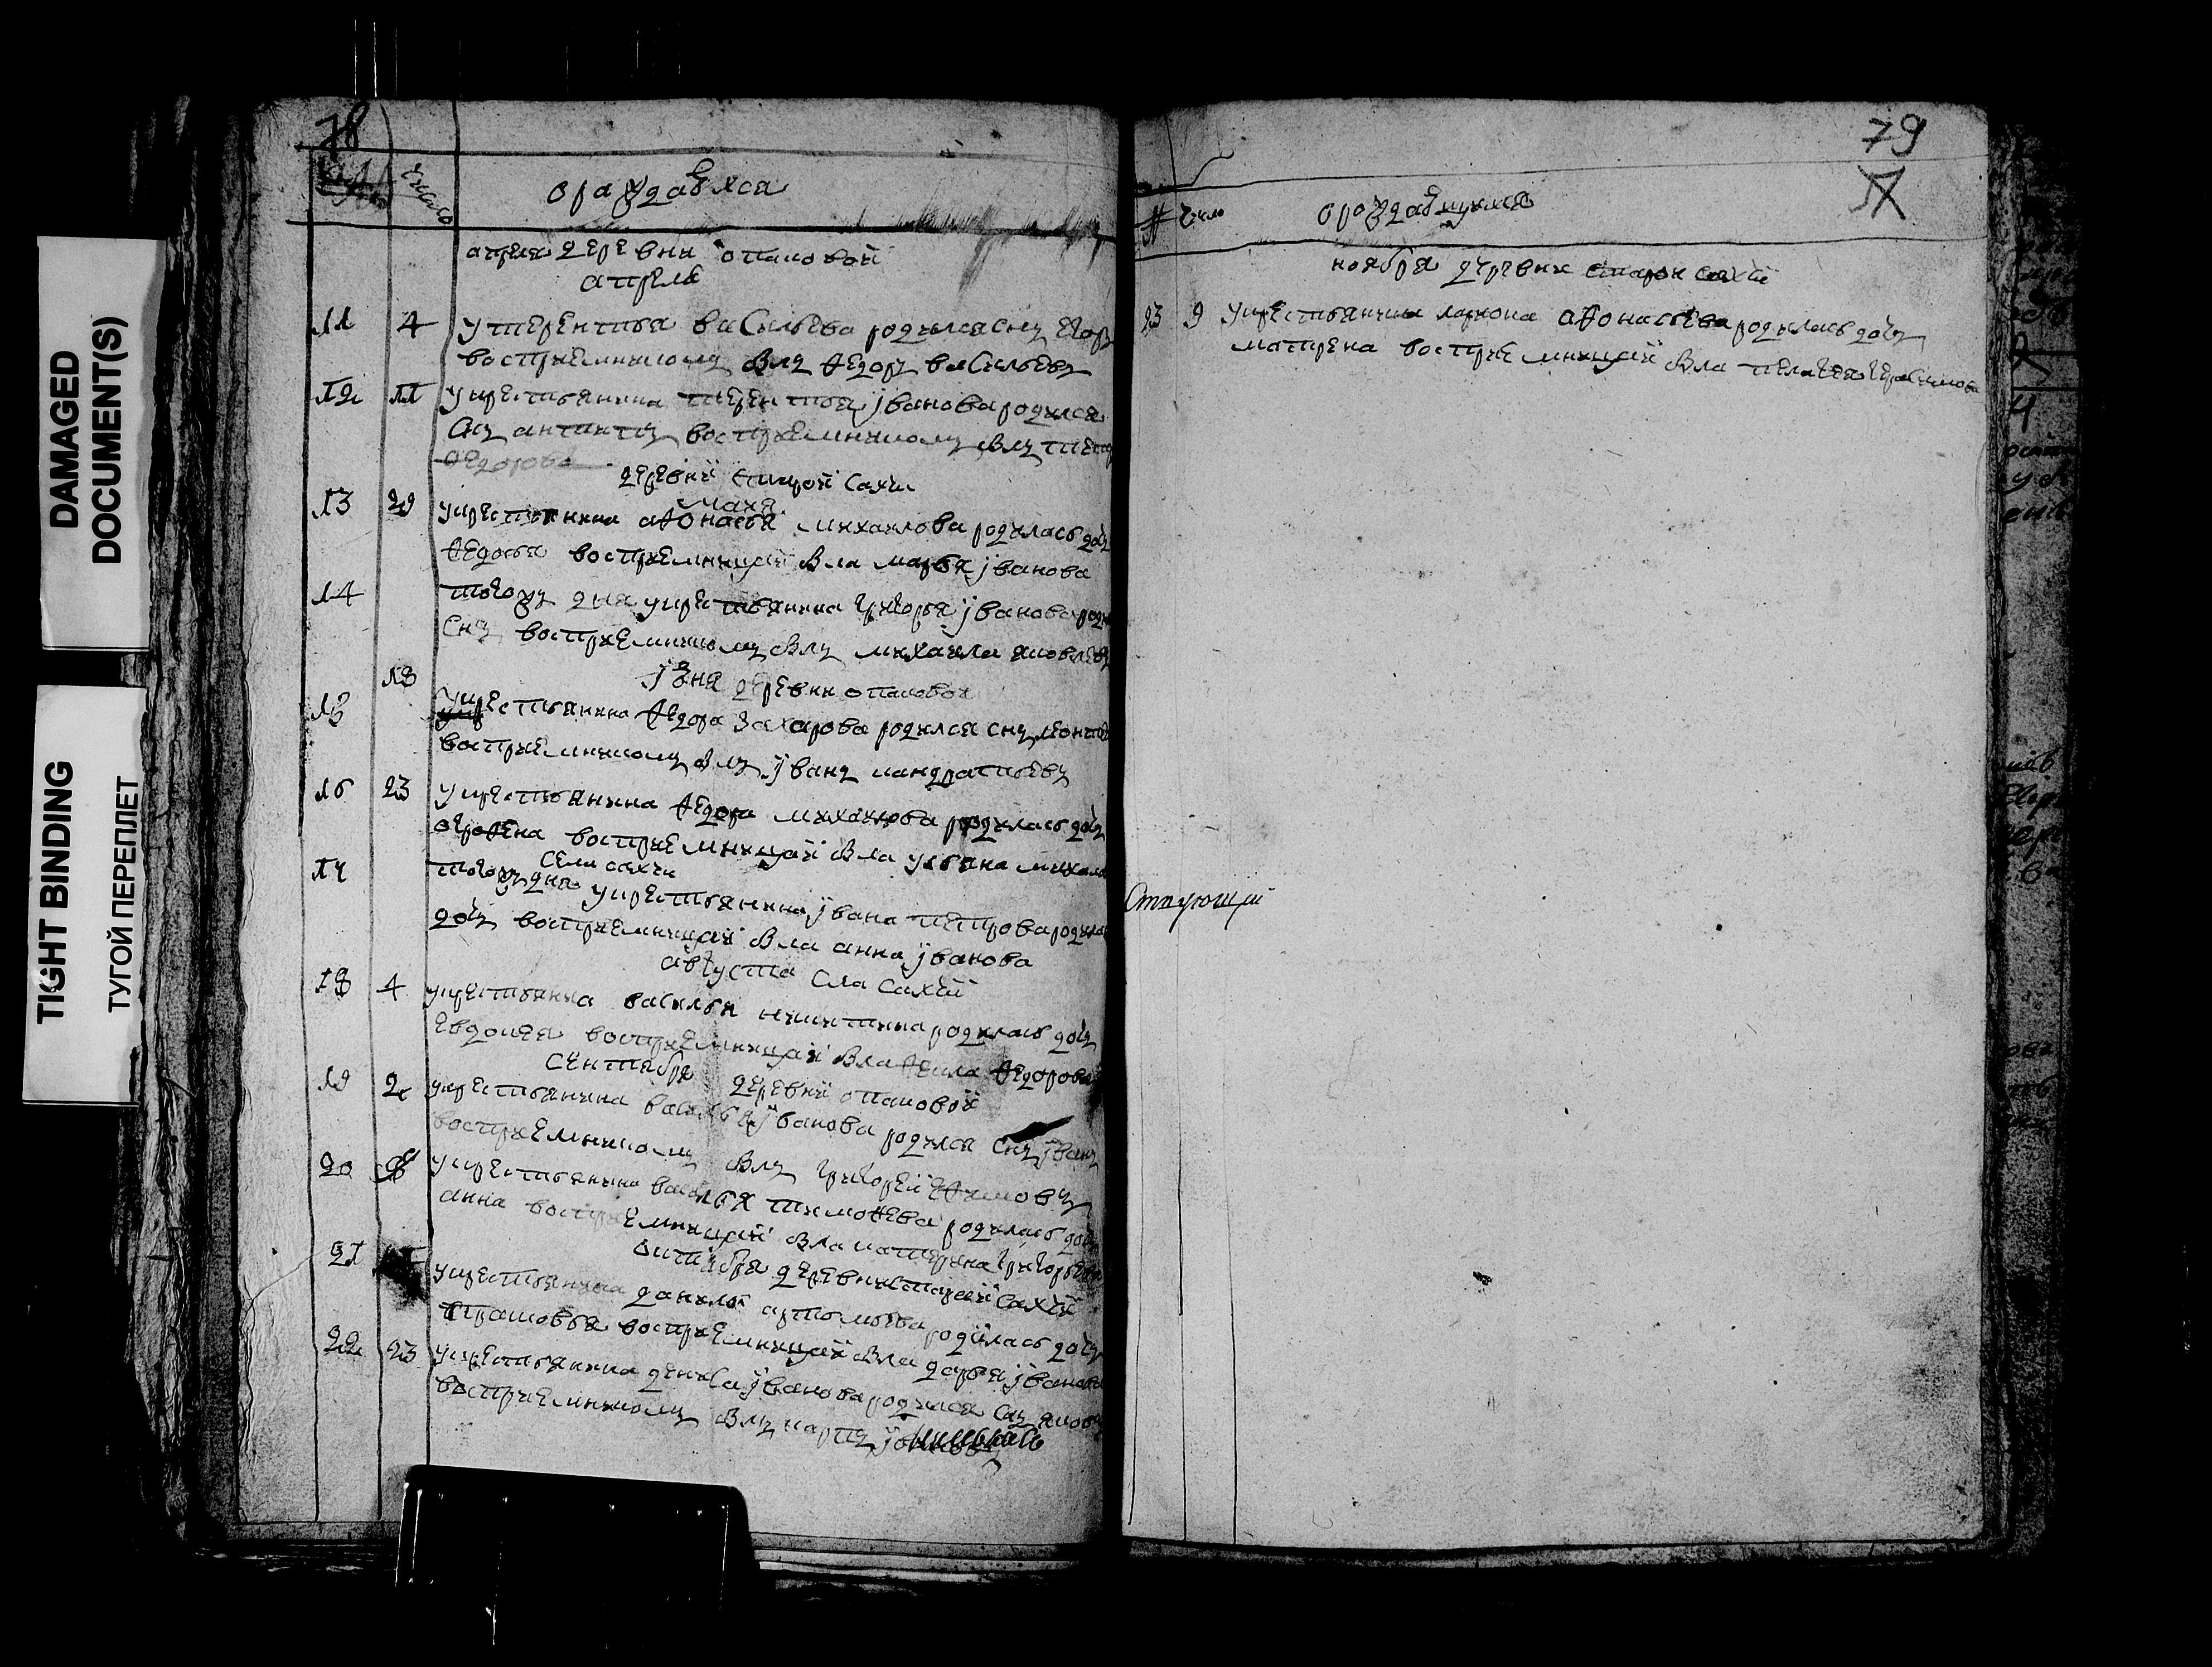 DAMAGED
DOCUMENT(S)
TIGHT BINDING
ТУГОЙ ПЕРЕПЛЕТ
78
число
о раждавхся
апреля деревни опаковой
апреля
11 4 у терентья васильева родился снъ егоръ
восприемникомъ былъ федоръ васильевъ
12 11 у крестьянина терентья јванова родился
снъ антипъ восприемникомъ былъ
федорова
деревни старой сахчи
маия
13 29 у крестьянина афонасья михаилова родилась дочъ
федосья восприемницай была марья јванова
14 тогожъ дня у крестьянина григорья јванова
снъ восприемникомъ былъ михаила яковлевъ
18 јюня деревни опаковой
15 у крестьянина федора захарова родился снъ
восприемникомъ былъ јванъ кандратьевъ
16 23 у крестьянина федора михаилова родилась дочъ
огрофена восприемницай была ульяна
села сахчи
17 тогожъ дня у крестьянина јвана петрова
дочъ восприемницай была анна јванова
августа сла сахчи
18 4 у крестьянина василья никитина родилась дочъ
евдокея восприемницай была фекла федорова
сентября деревни опаковой
19 2 у крестьянина василья јванова родился снъ јванъ
восприемникомъ былъ григорей ефимовъ
20 у крестьянина василья тимофева родилась дочъ
анна восприемницай была катерина григорьева
октября деревни старой сахчи
21 у крестьянина данилы родилась дочъ
прасковья восприемницай была дарья јванова
22 23 у крестьянина дениса јванова родился снъ яковъ
восприемникомъ былъ
79
№ число о рождавшихся
ноября деревни старои сахчи
23 9 у крестьянина лариона афонасьева родилась дочъ
матрена восприемницай была пелагея герасимова